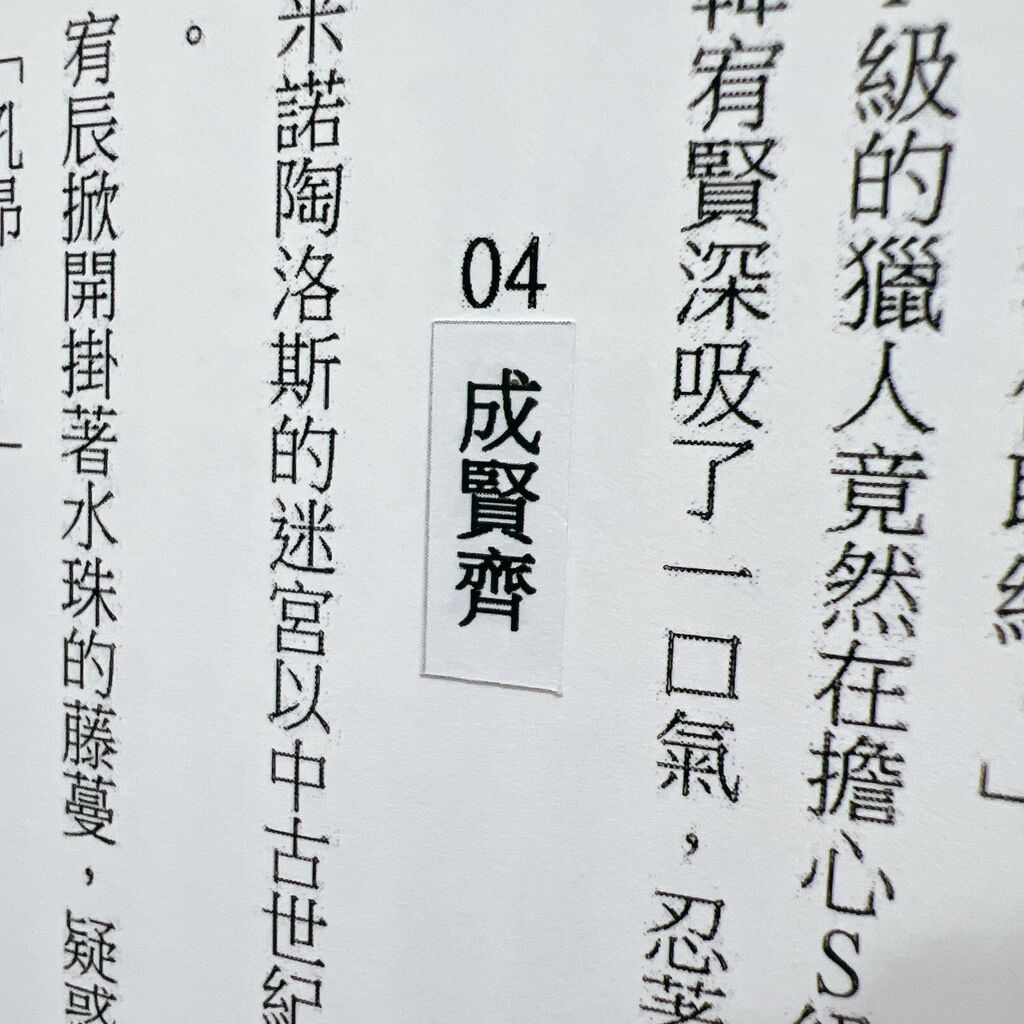 級的獵人竟然在擔心S
宥賢深吸了一口氣，忍著
04
成賢齊
米諾陶洛斯的迷宮以中古世紀
。
宥辰掀開掛著水珠的藤蔓，疑惑